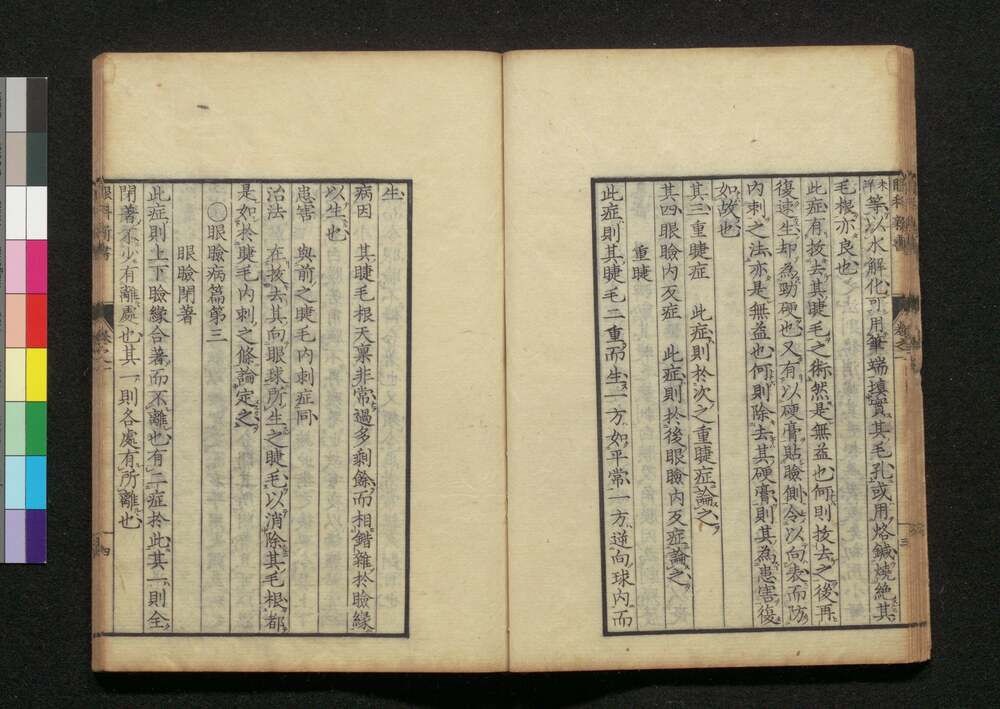 等以水解化可用筆端填實其毛孔或用烙鍼燒絶其
毛根亦良也
此症有拔去其睫毛之術然是無益也何則拔去之後再
復速生却為勁硬也又有以硬膏貼瞼側令以向表而防
内刺之法亦是無益也何則除去其硬膏則其為患害復
如故也
其三重睫症 此症則於次之重睫症論之
其四眼瞼内反症 此症則於後眼瞼内反症論之
重睫
此症則其睫毛二重而生一方如平常一方逆向球内而
生
病因 其睫毛根天稟非常過多剩餘而相錯雜於瞼縁
以生也
患害 與前之睫毛内刺症同
治法 在拔去其向眼球所生之睫毛以消除其毛根都
是如於睫毛内刺之條論定之
○眼瞼病篇第三
眼瞼閉著
此症則上下瞼縁合著而不離也有二症於此其一則全
閉著不少有離處也其一則各處有所離也